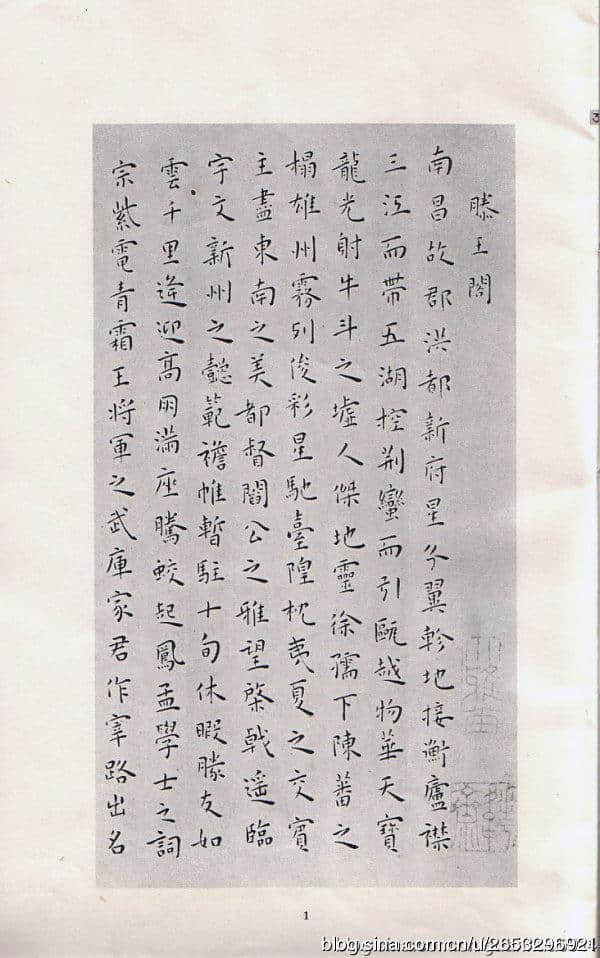 滕王閣
南昌故郡洪都新府星分翼軫地接衡廬襟
三江而帶五湖控荆蠻而引甌越物華天寶
龍光射牛斗之墟人傑地靈徐孺下陳蕃之
榻雄州霧列俊彩星馳臺隍枕夷夏之交賓
主盡東南之美都督閻公之雅望棨戟遥臨
宇文新州之懿範襜帷暫駐十旬休暇勝友如
雲千里逢迎高朋滿座騰蛟起鳳孟學士之詞
宗紫電青霜王將軍之武庫家君作宰路出名
1